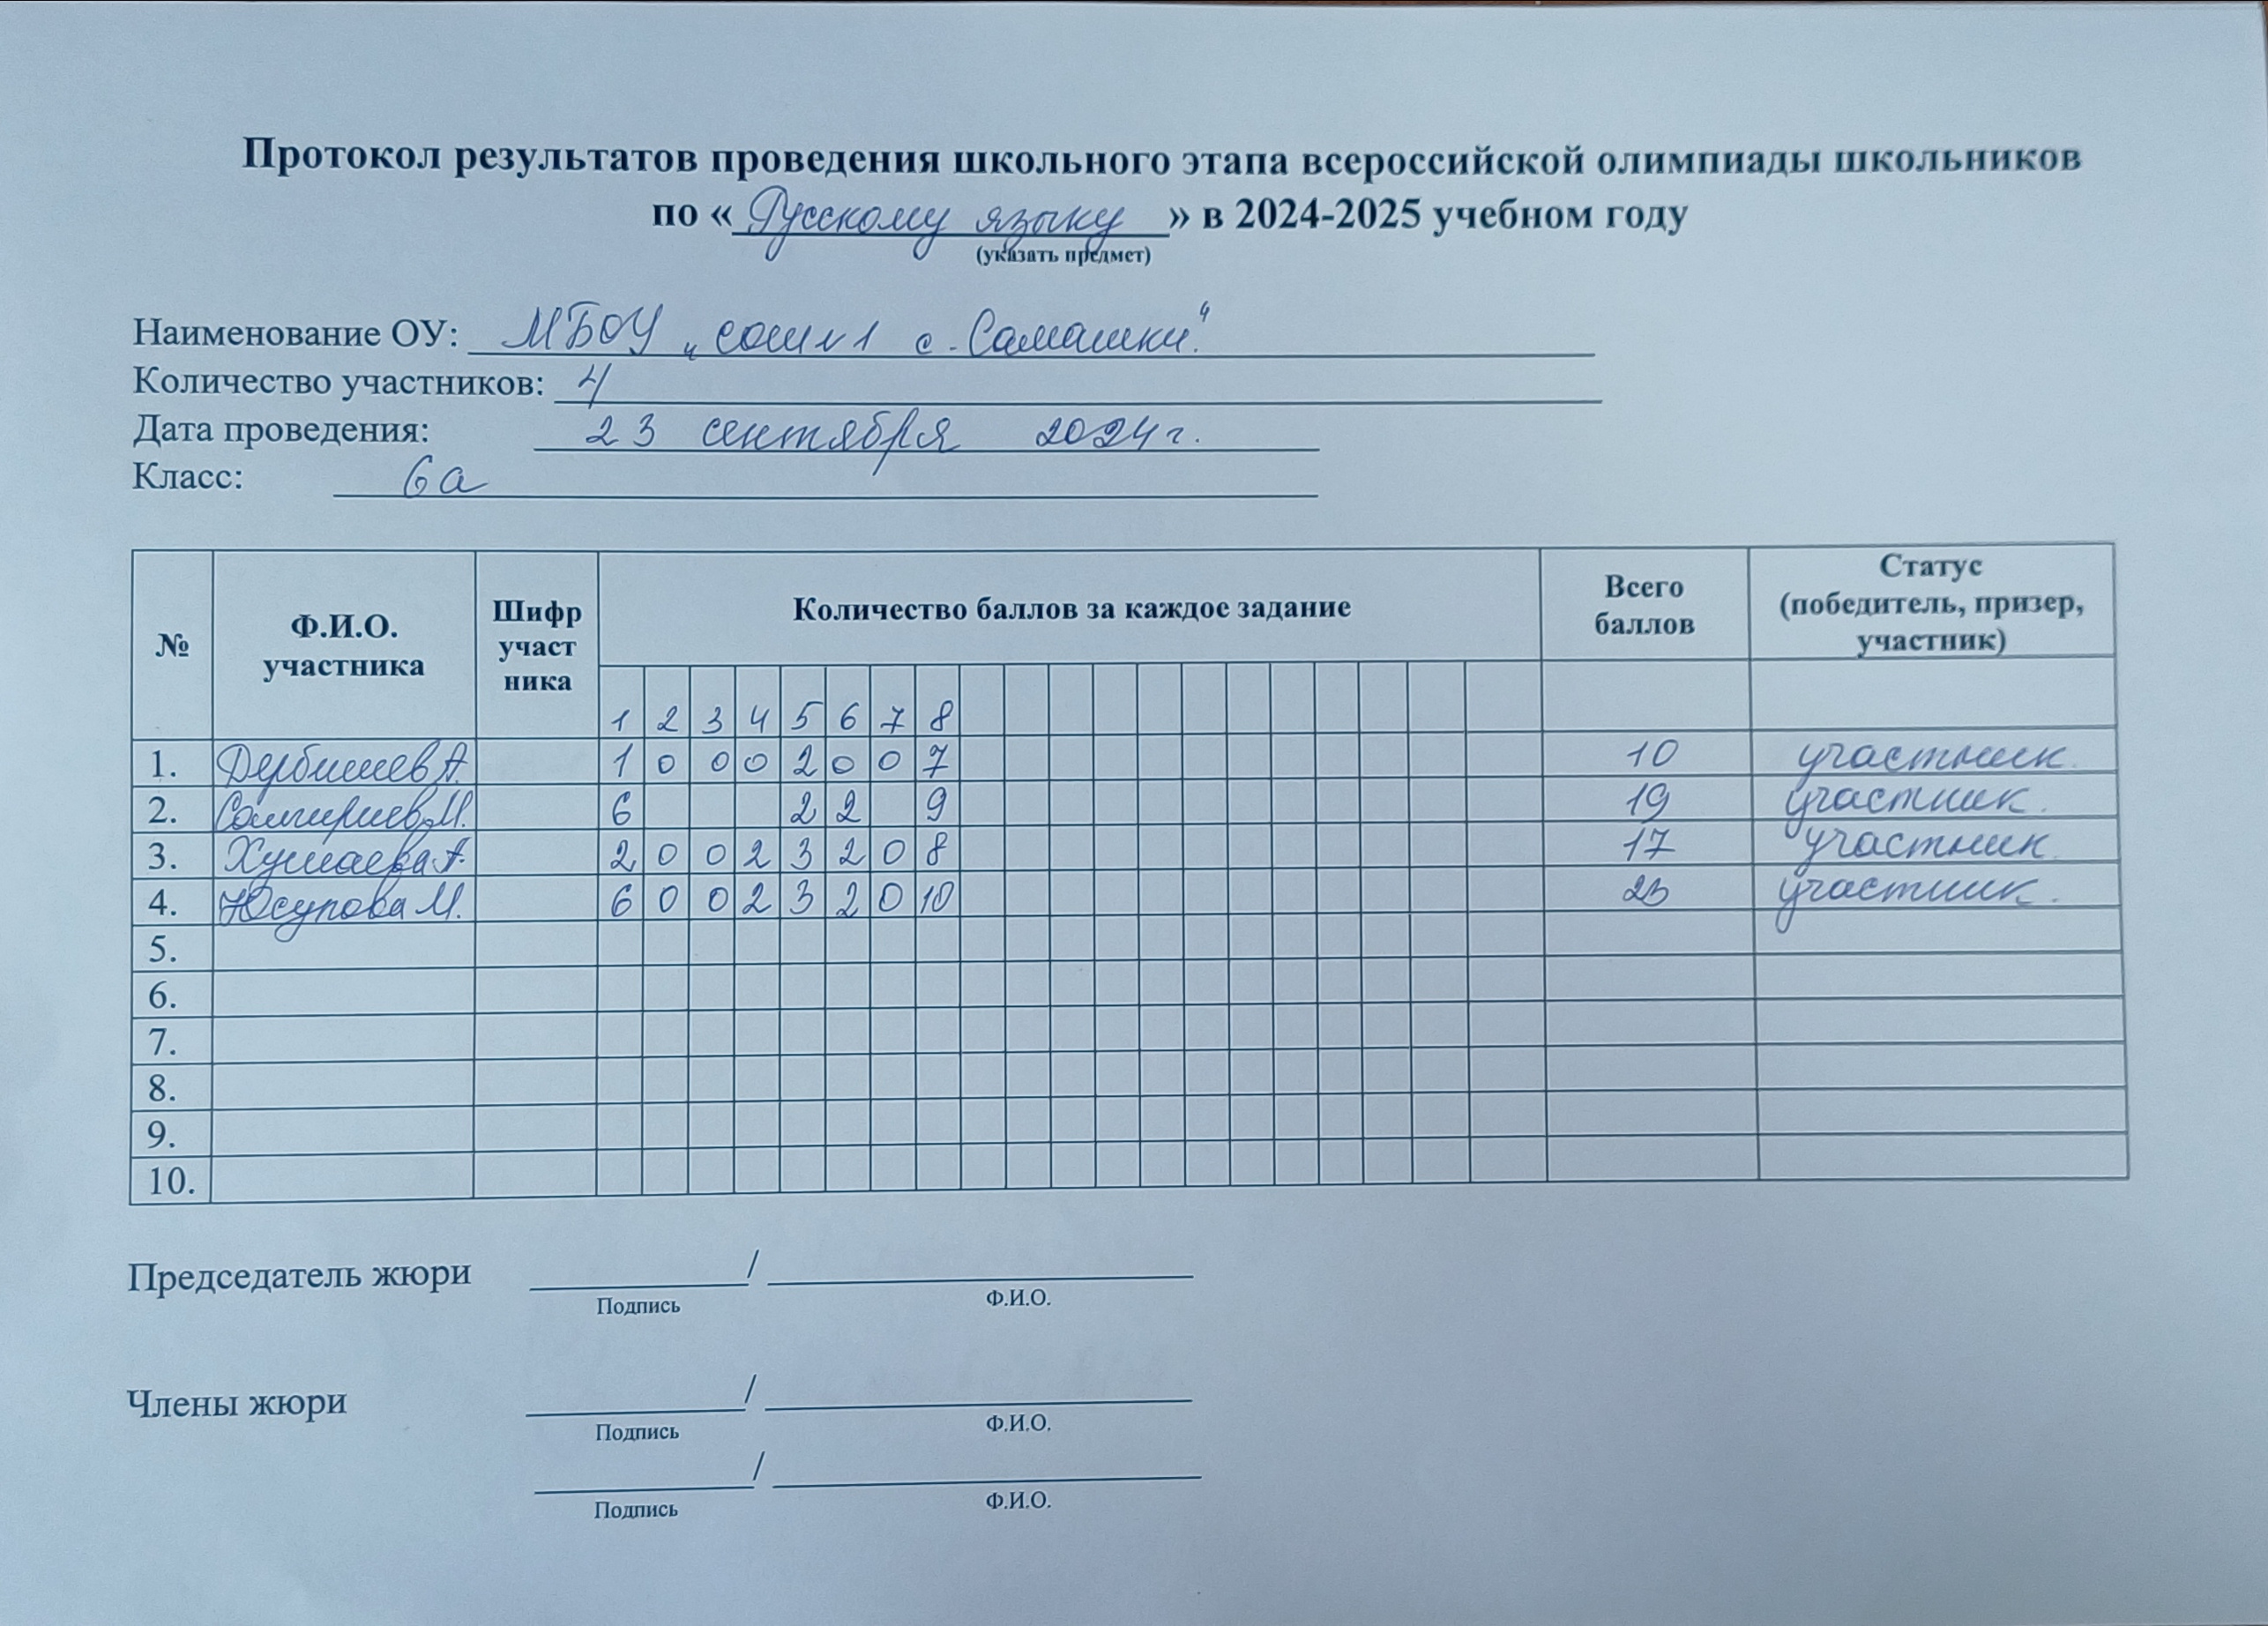 Протокол результатов проведения школьного этапа всероссийской олимпиады школьников
по « Русскому языку » в 2024-2025 учебном году
(указать предмет)
Наименование ОУ: МБОУ „СОШ№1 с. Самашки."
Количество участников: 4
Дата проведения: 23 сентября 2024г.
Класс: 6а
№ Ф.И.О. участника Шифр участ ника Количество баллов за каждое задание Всего баллов Статус (победитель, призер, участник)
1 2 3 4 5 6 7 8
1. Дербишев А. 1 0 0 0 2 0 0 7 10 участник.
2. М. 6 2 2 9 19 участник.
3. Хумаева А. 2 0 0 2 3 2 0 8 17 участник.
4. Юсупова М. 6 0 0 2 3 2 0 10 23 участник.
5.
6.
7.
8.
9.
10.
Председатель жюри /
Подпись Ф.И.О.
Члены жюри /
Подпись Ф.И.О.
/
Подпись Ф.И.О.